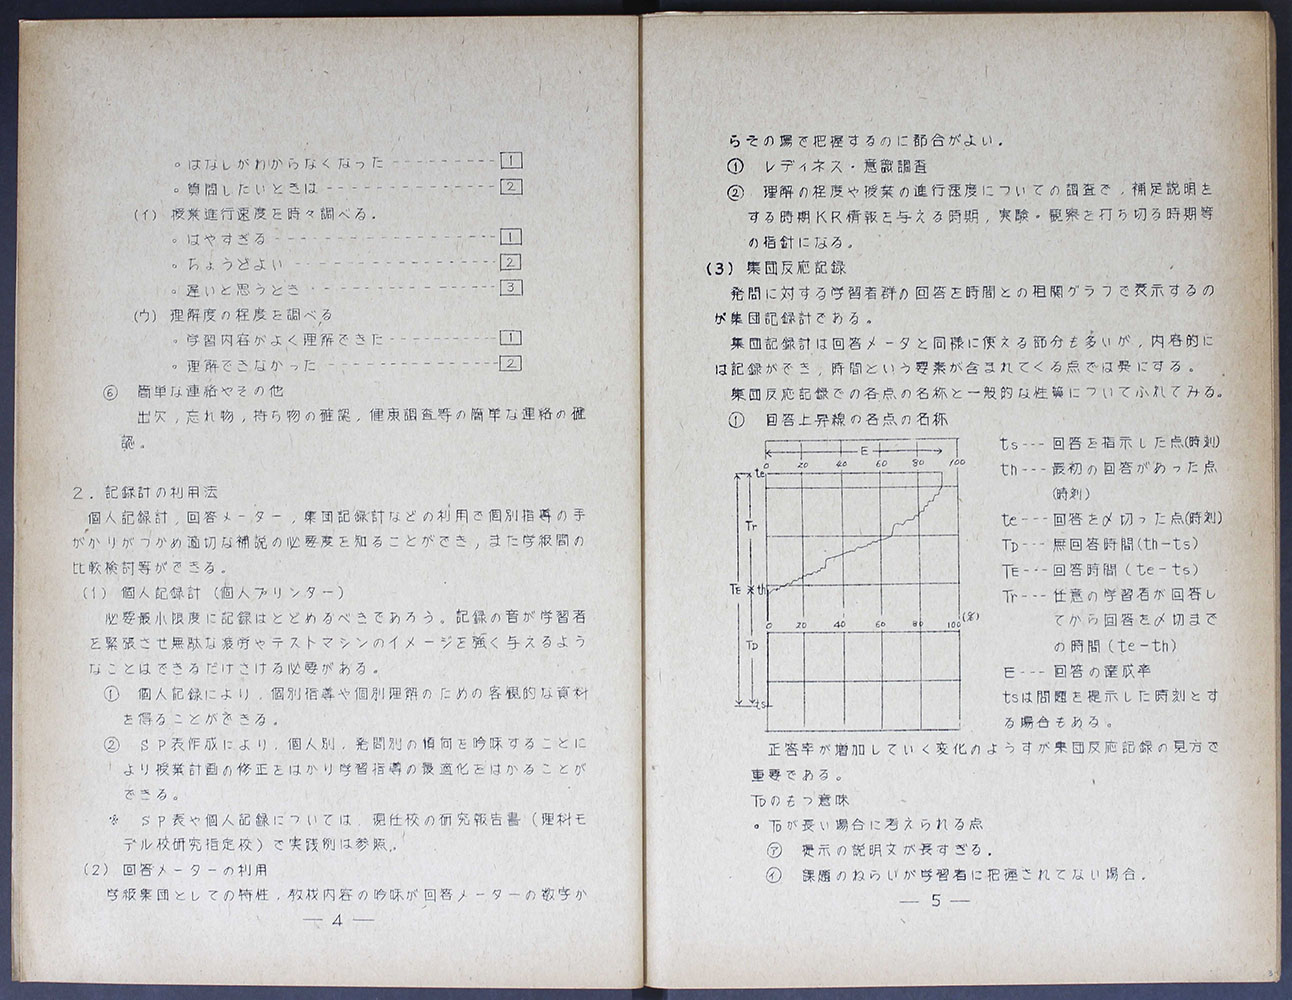 。はなしがわからなくなった----------1
。質問したいときは----------------2
(イ) 授業進行速度を時々調べる.
。はやすぎる---------------------1
。ちょうどよい-------------------2
。遅いと思うとき-----------------3
(ウ) 理解度の程度を調べる
。学習内容がよく理解できた----------1
。理解できなかった----------------2
⑥ 簡単な連絡やその他
出欠,忘れ物,持ち物の確認,健康調査等の簡単な連絡の確
認。
2.記録計の利用法
個人記録計,回答メーター,集団記録計などの利用で個別指導の手
がかりがつかめ適切な補説の必要度を知ることができ,また学級間の
比較検討等ができる。
(1) 個人記録計(個人プリンター)
必要最小限度に記録はとどめるべきであろう。記録の音が学習者
を緊張させ無駄な疲労やテストマシンのイメージを強く与えるよう
なことはできるだけさける必要がある。
① 個人記録により,個別指導や個別理解のための客観的な資料
を得ることができる。
② SP表作成により,個人別,発問別の傾向を吟味することに
より授業計画の修正をはかり学習指導の最適化をはかることが
できる。
※ SP表や個人記録については,現任校の研究報告書(理科モ
デル校研究指定校)で実践例は参照。
(2) 回答メーターの利用
学級集団としての特性,教材内容の吟味が回答メーターの数字か
— 4 —
らその場で把握するのに都合がよい.
① レディネス・意識調査
② 理解の程度や授業の進行速度についての調査で,補足説明を
する時期KR情報を与える時期,実験・観察を打ち切る時期等
の指針になる。
(3) 集団反応記録
発問に対する学習者群の回答を時間との相関グラフで表示するの
が集団記録計である。
集団記録計は回答メータと同様に使える部分も多いが,内容的に
は記録ができ,時間という要素が含まれてくる点では異にする。
集団反応記録での各点の名称と一般的な性質についてふれてみる。
① 回答上昇線の各点の名称
E
0 20 40 60 80 100
te
Tr
TE th
0 20 40 60 80 100 (%)
TD
ts
ts---回答を指示した点(時刻)
th---最初の回答があった点
(時刻)
te---回答を〆切った点(時刻)
TD---無回答時間(th-ts)
TE---回答時間(te-ts)
Tr---任意の学習者が回答し
てから回答を〆切まで
の時間(te-th)
E---回答の達成率
tsは問題を提示した時刻とす
る場合もある。
正答率が増加していく変化のようすが集団反応記録の見方で
重要である。
TDのもつ意味
。TDが長い場合に考えられる点
㋐ 提示の説明文が長すぎる.
㋑ 課題のねらいが学習者に把握されてない場合.
— 5 —